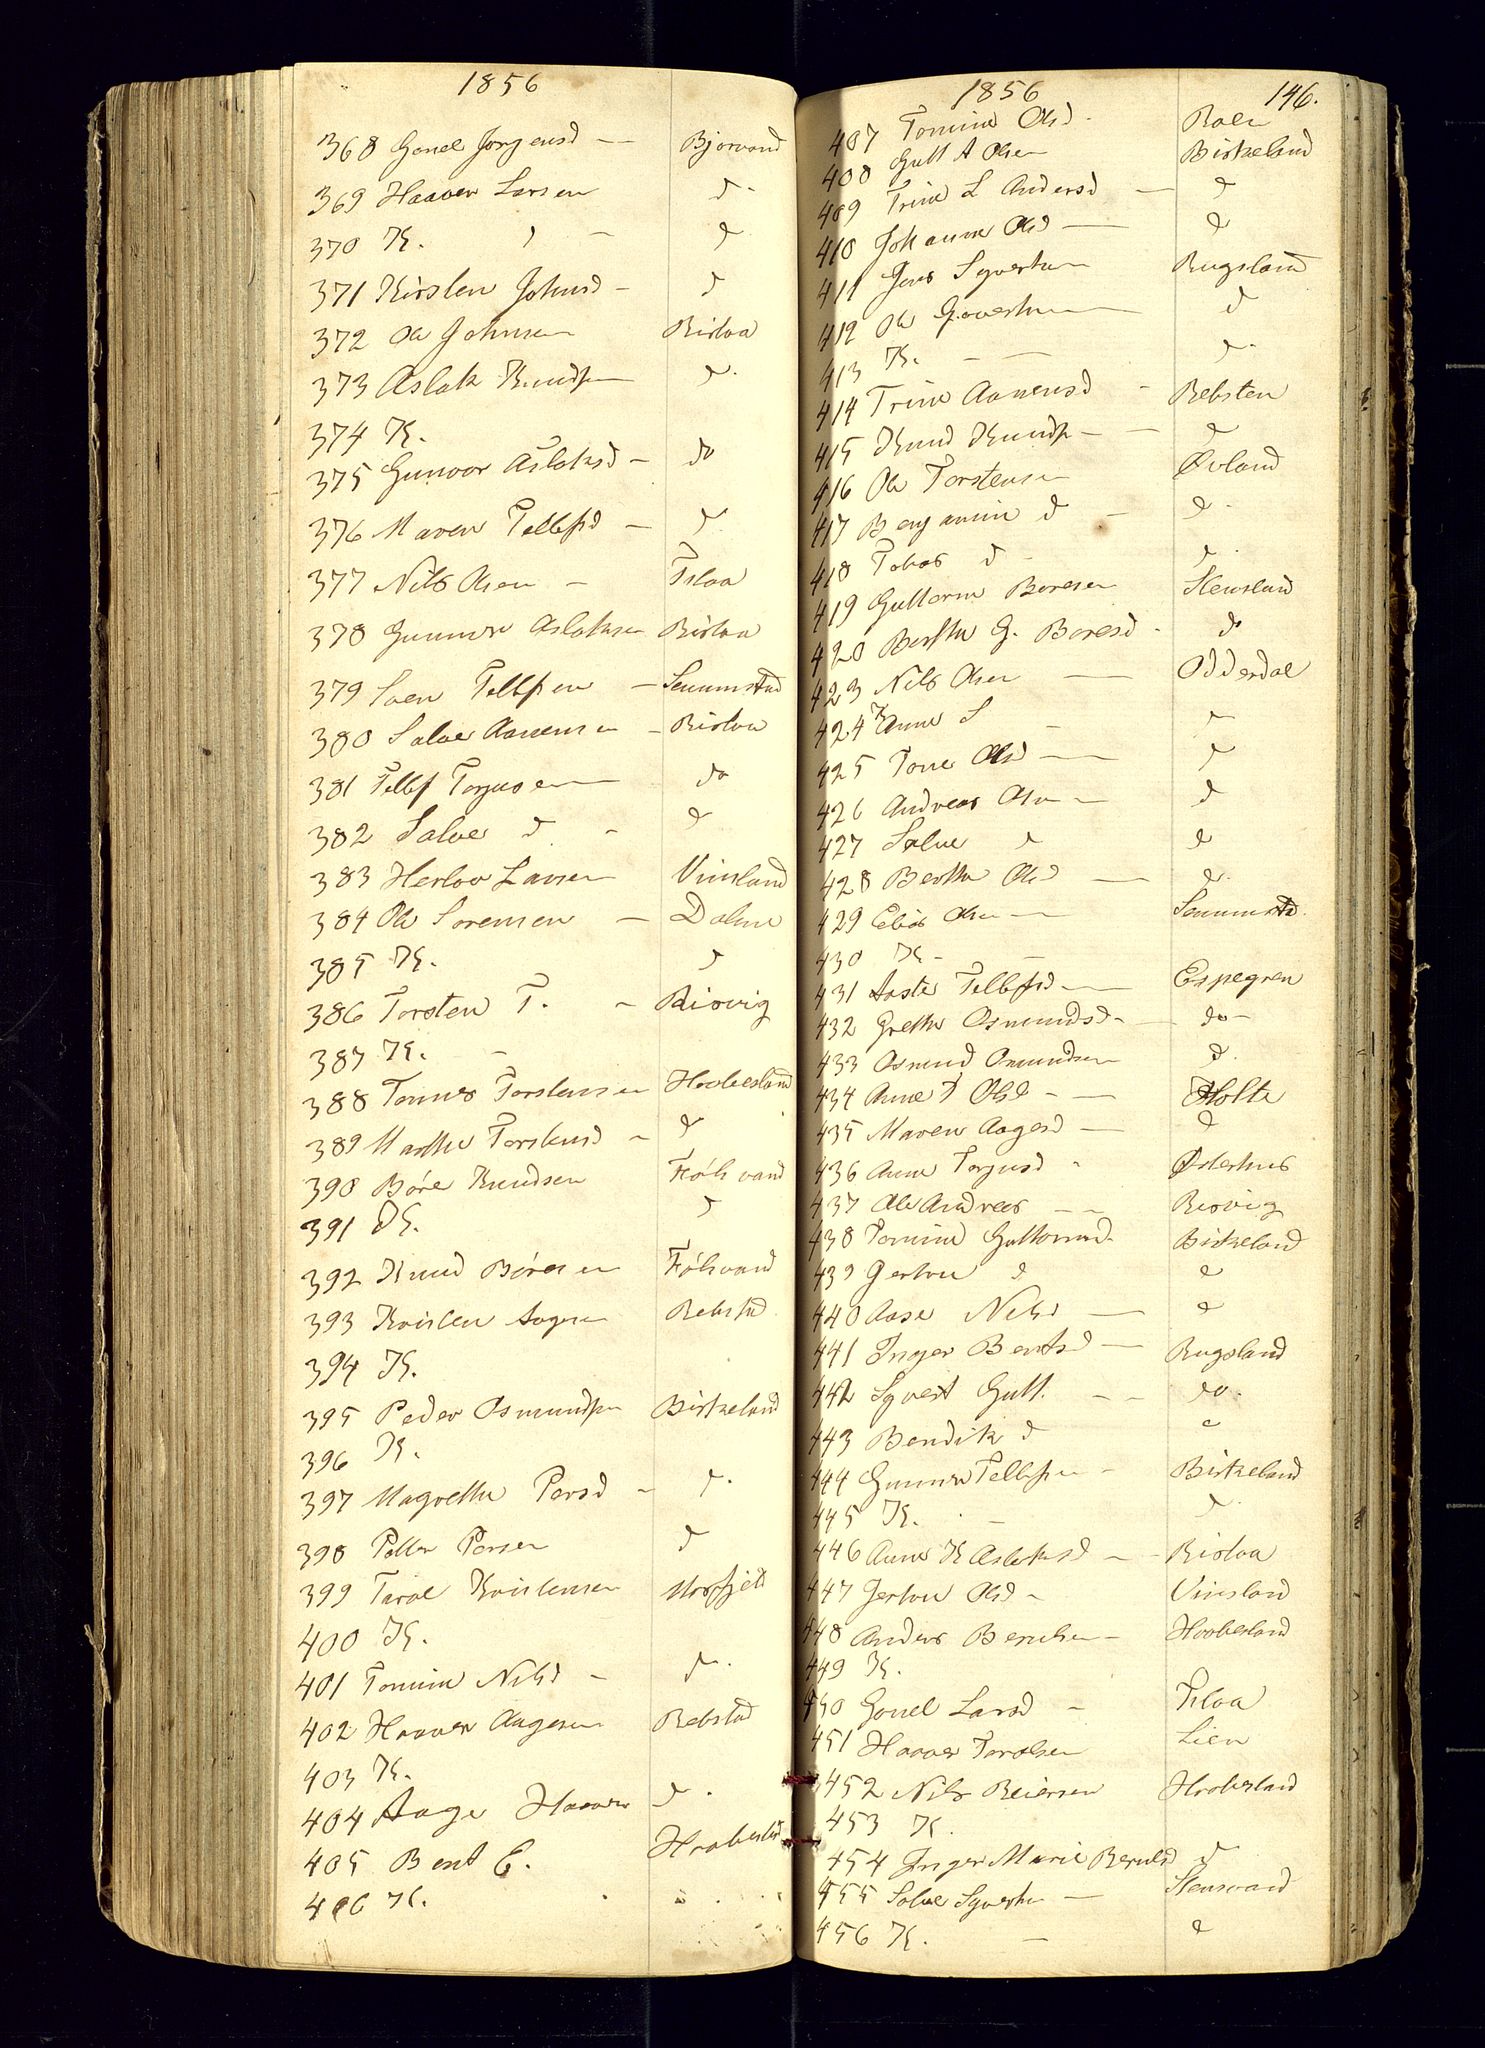 1856
368 Gonel Jorgensd — Bjorvand
369 Haaver Larsen d
370 K. d — d
371 Kirsten Johnsd — d
372 Ole Johnsen Risloa
373 Aslak Knudsen d.
374 K.
375 Gunvor Aslaksd — do
376 Maren Tellefsd — d.
377 Nils Olsen — Tsloa
378 Gunner Aslaksen Risloa
379 Soen Tellefsen — Senumstad
380 Salve Aanensen — Risloa
381 Tellef Torjusen do
382 Salve d. — d
383 Herlov Larsen Vinsland
384 Ole Sorensen — Dalene
385 K. d
386 Torsten T. — Risvig
387 K. —
388 Tonnes Torstensen Hoobesland
389 Marthe Torstensd — d
390 Böre Knudsen Föhvand
391 K. d
392 Knud Böresen Föhvand
393 Kristen Aagesen Rebstad
394 K.
395 Peder Osmundsen Birkeland
396 K.
397 Magrethe Persd — d.
398 Petter Persen d
399 Taral Kristensen Mosfjeld
400 K.
401 Tomine Nilsd — d.
402 Haaver Aagesen Rebstad
403 K.
404 Aage Haaver d.
405 Bent E. Hoobesland
406 K.
1856 146.
407 Tomine Olsd. Roen
408 Gutt A Olsen Birkeland
409 Trine L Andersd — d
410 Johanne Olsd — d
411 Jens Syvertsen Rugsland
412 Ole Syvertsen d
413 K. — — d.
414 Trine Aanensd — Rebsten
415 Knud Knudsen — — d
416 Ole Torstensen Øvland
417 Benjamin d — d.
418 Tobias d — d.
419 Guttorm Boresen Stensland
420 Berthe G. Boresd — do
423 Nils Olsen — Odderdal
424 Anne S —
425 Tone Olsd — d
426 Andreas Olsen — d
427 Salve d d
428 Berthe Olsd — d.
429 Elias Olsen — Senumstd.
430 K — —
431 Aaste Tellefsd — Espegren
432 Grethe Osmundsd — do —
433 Osmund Osmundsen d.
434 Anne T Olsd — — Holte
435 Maren Aagesd — d
436 Anne Torjusd — Østerhus
437 Ole Andreas — — Risvig
438 Tomine Guttormsd — Birkeland
439 Gertou d d
440 Aase Nilsd — d
441 Inger Bentsd — Rugsland
442 Syvert Gutt. — — do.
443 Bendik d d
444 Gunner Tellefsen — Birkeland
445 K. — d.
446 Anne K Aslaksd — — Risloa
447 Gertou Olsd — Vinsland
448 Anders Berulsen — Hoobesland
449 K.
450 Gonel Larsd — Tsloa
451 Haaver Tarolsen Lien
452 Nils Reiersen Hoobesland
453 K.
454 Inger Marie Berulsd d
455 Salve Syvertsen — Stensvand
456 K. — d